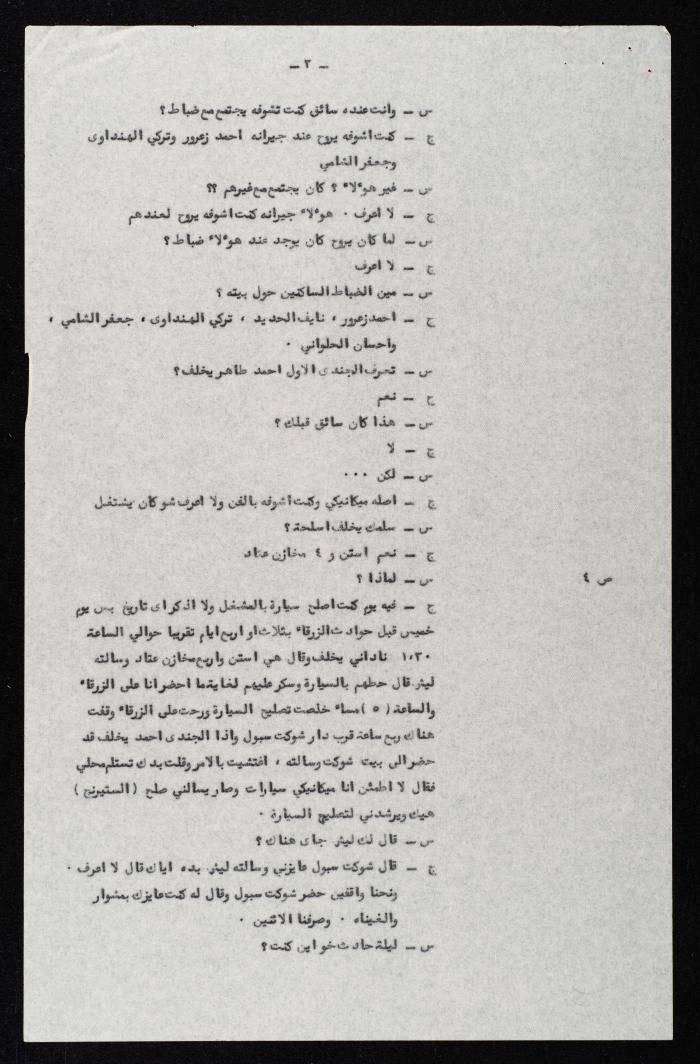 - ٣ -
س - وانت عنده سائق كنت تشوفه يجتمع مع ضباط ؟
ج - كنت اشوفه يروح عند جيرانه احمد زعرور وتركي الهنداوى
وجعفر الشامي
س - غير هوءلاء ؟ كان يجتمع مع غيرهم ؟؟
ج - لا اعرف ٠ هوءلاء جيرانه كنت اشوفه يروح لعندهم
س - لما كان يروح كان يوجد عند هوءلاء ضباط ؟
ج - لا اعرف
س - مين الضباط الساكنين حول بيته ؟
ج - احمد زعرور ، نايف الحديد ، تركي الهنداوى ، جعفر الشامي ،
واحسان الحلواني ٠
س - تعرف الجندى الاول احمد طاهر يخلف ؟
ج - نعم
س - هذا كان سائق قبلك ؟
ج - لا
س - لكن ٠٠٠
ج - اصله ميكانيكي وكنت اشوفه بالفن ولا اعرف شو كان يشتغل
س - سلمك يخلف اسلحة ؟
ج - نعم استن و ٤ مخازن عتاد
س - لماذا ؟
ص ٤
ج - فيه يوم كنت اصلح سيارة بالمشغل ولا اذكر اى تاريخ بس يوم
خميس قبل حوادث الزرقاء بثلاث او اربع ايام تقريبا حوالي الساعة
١،٣٠ ناداني يخلف وقال هي استن واربع مخازن عتاد وسالته
ليش قال حطهم بالسيارة وسكر عليهم لغاية ما احضر انا على الزرقاء
والساعة ( ٥ ) مساء خلصت تصليح السيارة ورحت على الزرقاء وقفت
هناك ربع ساعة قرب دار شوكت سبول واذا الجندى احمد يخلف قد
حضر الى بيت شوكت وسالته ، اغتشيت بالامر وقلت بدك تستلم محلي
فقال لا اطمئن انا ميكانيكي سيارات وصار يسالني صلح ( الستيرنج )
هيك ويرشدني لتصليح السيارة ٠
س - قال لك ليش جاى هناك ؟
ج - قال شوكت سبول عايزني وسالته ليش بده اياك قال لا اعرف ٠
ونحنا واقفين حضر شوكت سبول وقال له كنت عايزك بمشوار
والغيناه ٠ وصرفنا الاثنين ٠
س - ليلة حادث خو اين كنت ؟